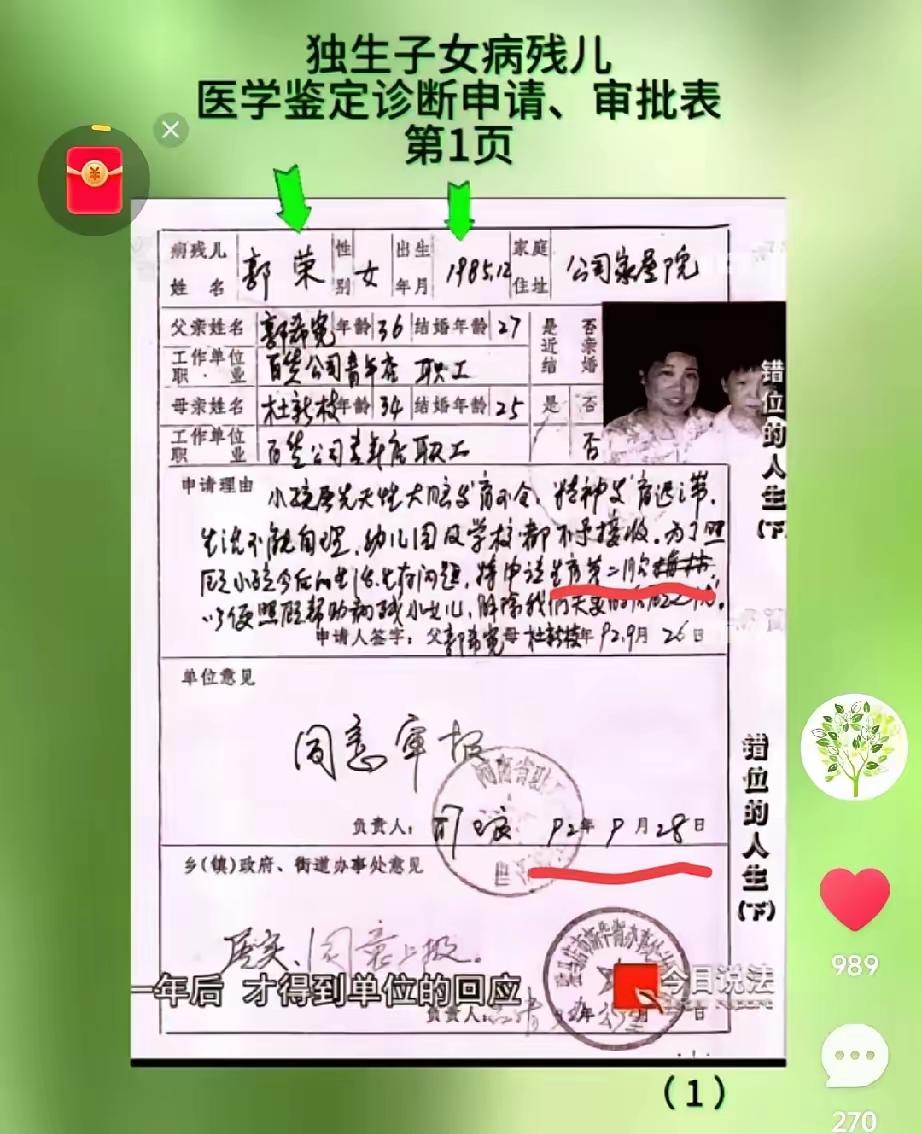 独生子女病残儿
医学鉴定诊断申请、审批表
第1页
病残儿姓名 郭荣 性别 女 出生年月 1985.12 家庭住址 公司家属院
父亲姓名 郭希宽 年龄 36 结婚年龄 27 是否近亲结婚
工作单位职业 百货公司青年店 职工
母亲姓名 杜新枝 年龄 34 结婚年龄 25 是 否
工作单位职业 百货公司青年店 职工 否
申请理由
小孩属先天性大脑发育不全、精神发育迟滞.
生活不能自理,幼儿园及学校都不予接收.为了照
顾小孩今后的生活.生存问题,特申请生育第二胎
以便照顾帮助病残小女儿,解除我们夫妻的后顾之忧.
申请人签字:父 郭希宽 母 杜新枝 年 92.9月 26日
单位意见
同意审报
河南省驻
负责人: 92年 9月 28日
乡(镇)政府、街道办事处意见
属实、同意上报.
一年后 才得到单位的回应
负责人:
今日说法
日
错位的人生(下)
错位的人生(下)
(1)
989
270